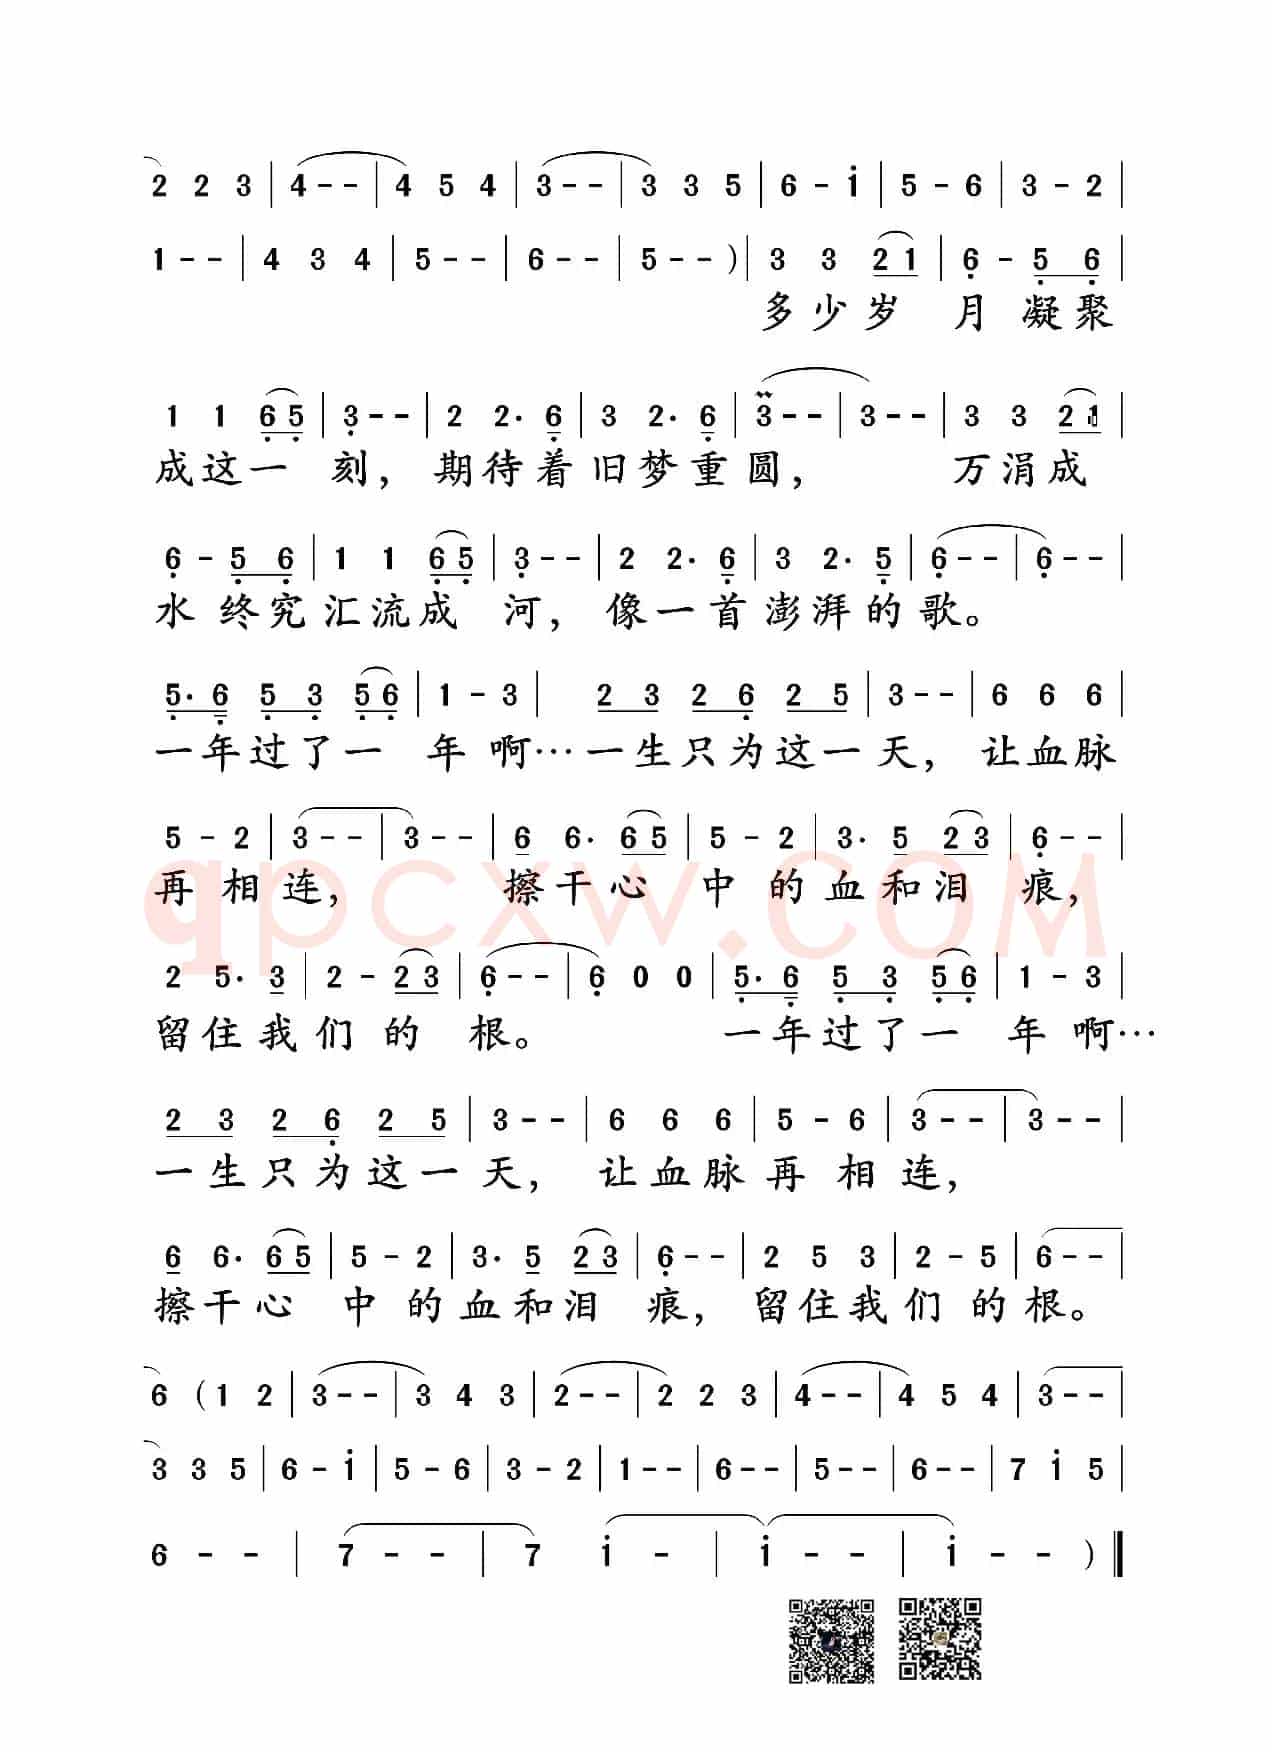 2 2 3 | 4 - - | 4 5 4 | 3 - - | 3 3 5 | 6 - i | 5 - 6 | 3 - 2 |
1 - - | 4 3 4 | 5 - - | 6 - - | 5 - - ) | 3 3 2 1 | 6 - 5 6 |
多少岁 月 凝聚
1 1 6 5 | 3 - - | 2 2· 6 | 3 2· 6 | 3 - - | 3 - - | 3 3 2 1 |
成这一 刻, 期待着旧梦重圆, 万涓成
6 - 5 6 | 1 1 6 5 | 3 - - | 2 2· 6 | 3 2· 5 | 6 - - | 6 - - |
水 终究汇流成 河, 像一首澎湃的歌。
5· 6 5 3 5 6 | 1 - 3 | 2 3 2 6 2 5 | 3 - - | 6 6 6 |
一年过了一 年 啊…一生只为这一天, 让血脉
5 - 2 | 3 - - | 3 - - | 6 6· 6 5 | 5 - 2 | 3· 5 2 3 | 6 - - |
再 相连, 擦干心 中 的血和泪 痕,
qpcxw.COM
2 5· 3 | 2 - 2 3 | 6 - - | 6 0 0 | 5· 6 5 3 5 6 | 1 - 3 |
留住我们 的 根。 一年过了一 年 啊…
2 3 2 6 2 5 | 3 - - | 6 6 6 | 5 - 6 | 3 - - | 3 - - |
一生只为这一天, 让血脉再 相连,
6 6· 6 5 | 5 - 2 | 3· 5 2 3 | 6 - - | 2 5 3 | 2 - 5 | 6 - - |
擦干心 中 的血和泪 痕, 留住我们 的根。
6 ( 1 2 | 3 - - | 3 4 3 | 2 - - | 2 2 3 | 4 - - | 4 5 4 | 3 - - |
3 3 5 | 6 - i | 5 - 6 | 3 - 2 | 1 - - | 6 - - | 5 - - | 6 - - | 7 i 5 |
6 - - | 7 - - | 7 i - | i - - | i - - ) ‖